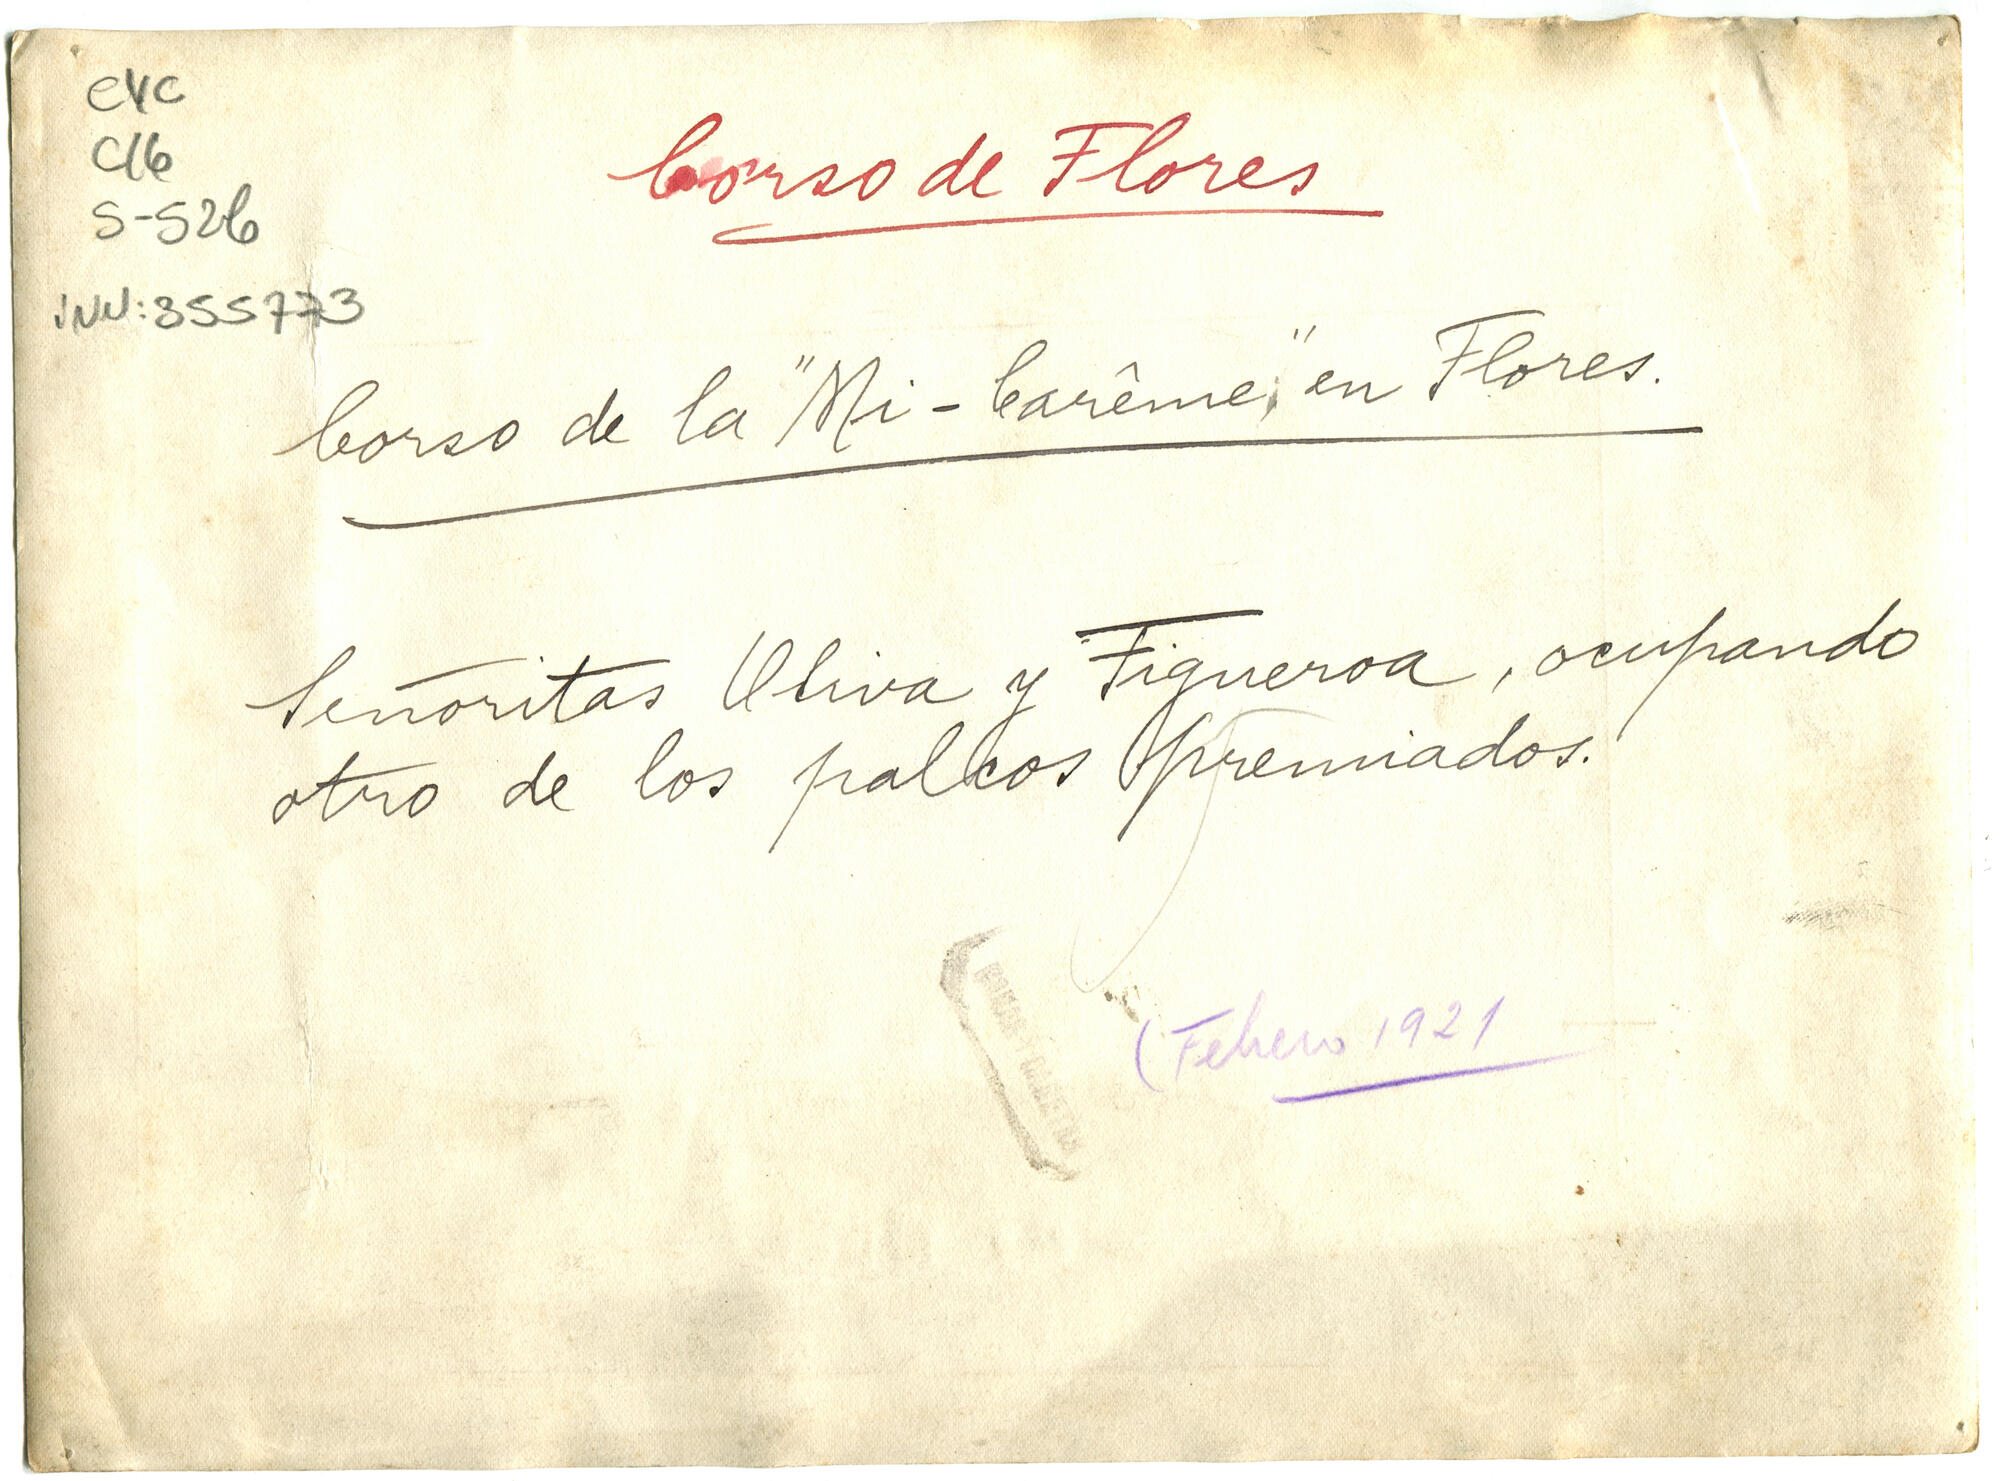 CYC
C16
S-526
INV: 355773
Corso de Flores
Corso de la "Mi-Carême," en Flores.
Señoritas Oliva y Figueroa, ocupando
otro de los palcos premiados.
(Febrero 1921